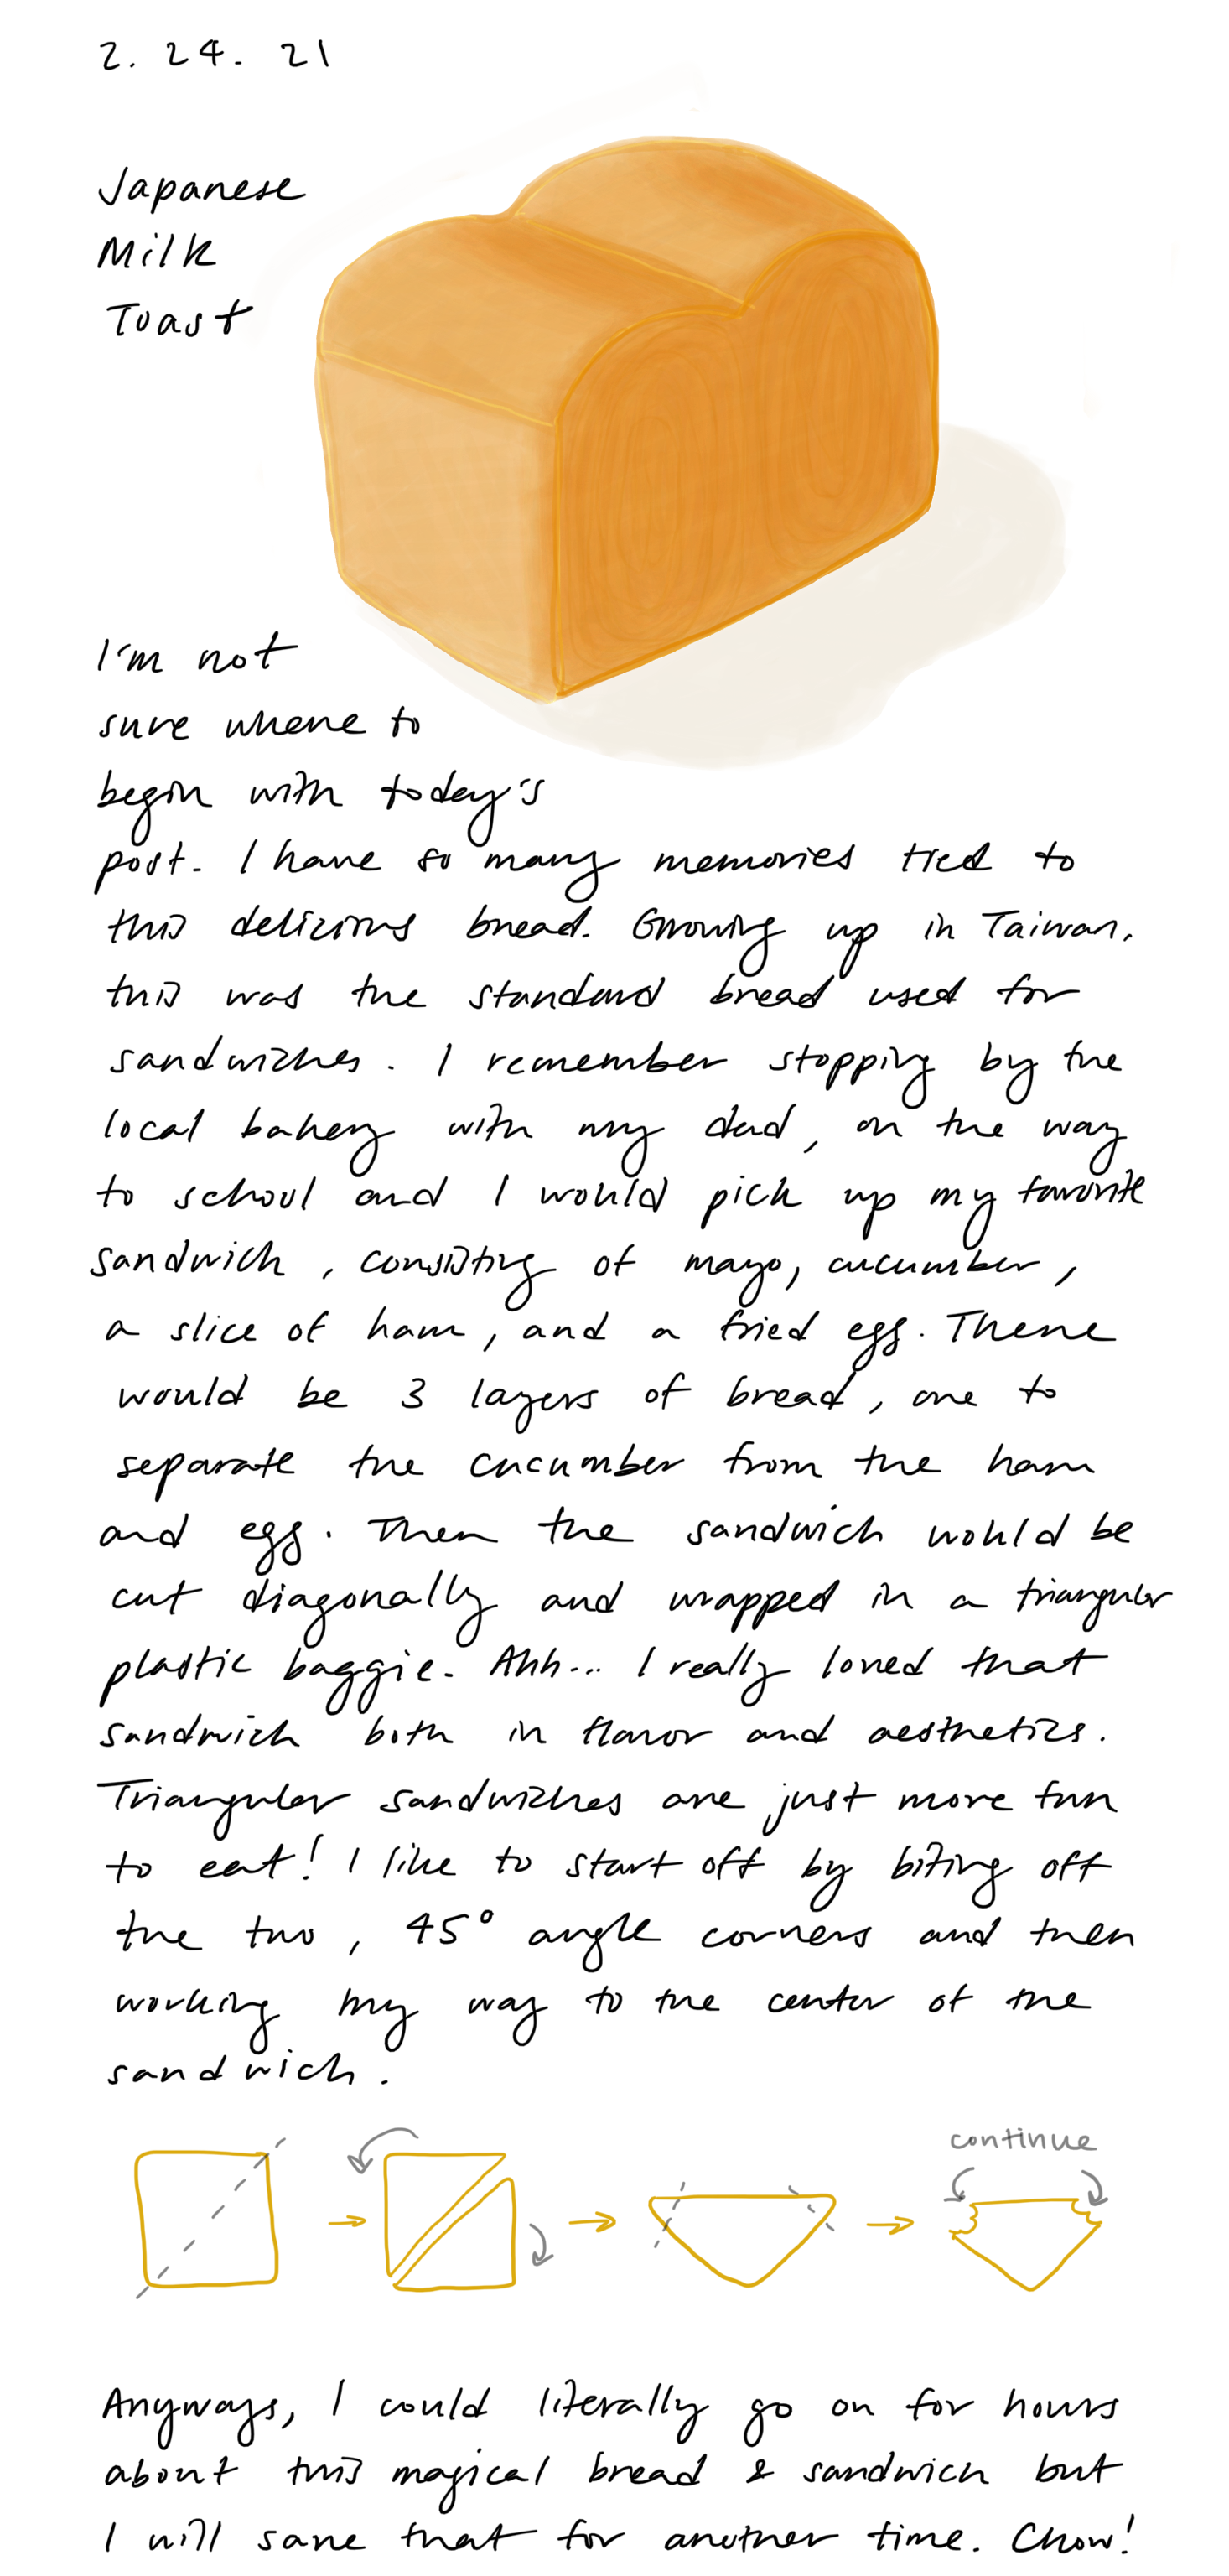 2. 24. 21
Japanese
Milk
Toast
I'm not
sure where to
begin with today's
post. I have so many memories tied to
this delicious bread. Growing up in Taiwan,
this was the standard bread used for
sandwiches. I remember stopping by the
local bakery with my dad, on the way
to school and I would pick up my favorite
sandwich, consisting of mayo, cucumber,
a slice of ham, and a fried egg. There
would be 3 layers of bread, one to
separate the cucumber from the ham
and egg. Then the sandwich would be
cut diagonally and wrapped in a triangular
plastic baggie. Ahh... I really loved that
sandwich both in flavor and aesthetics.
Triangular sandwiches are just more fun
to eat! I like to start off by biting off
the two, 45° angle corners and then
working my way to the center of the
sandwich.
continue
Anyways, I could literally go on for hours
about this magical bread & sandwich but
I will save that for another time. Chow!